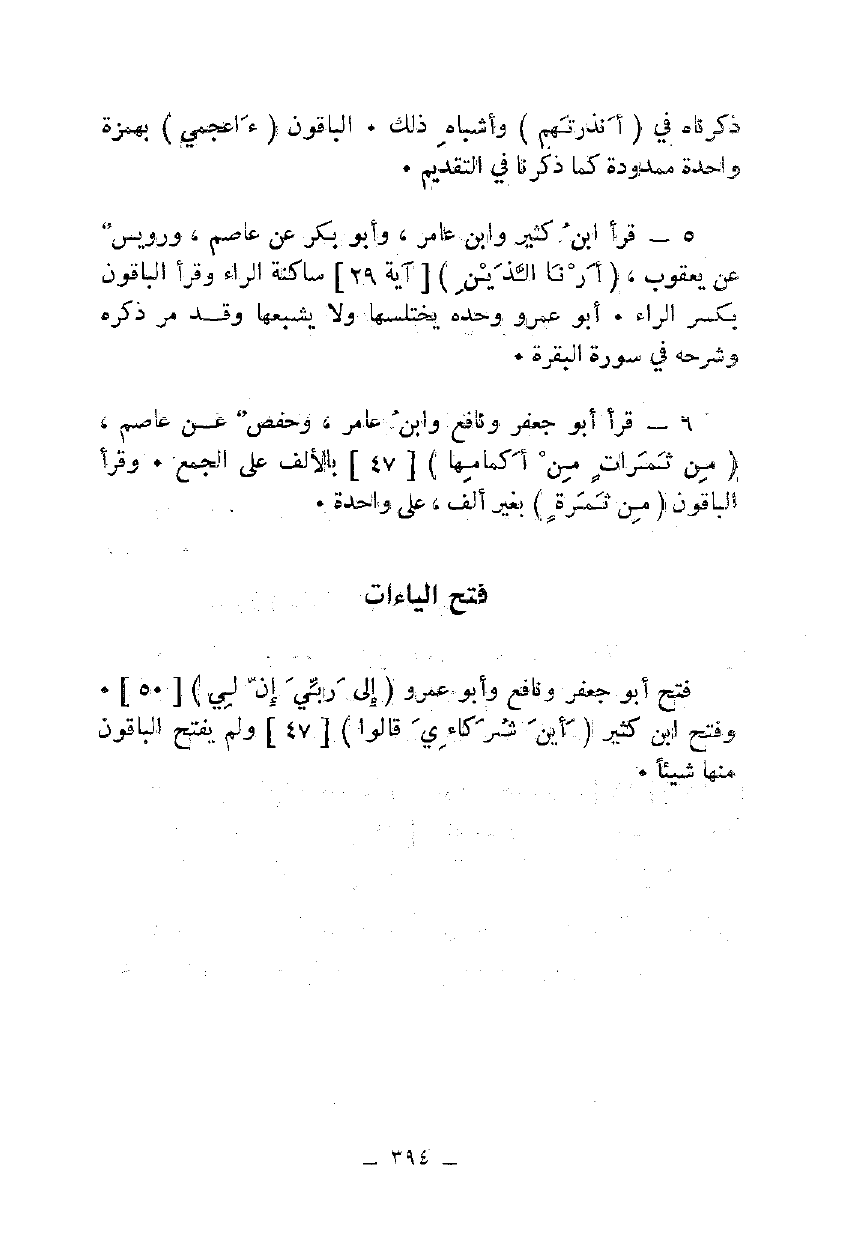 ذكرناه في ( أَنذرتَهم ) وأشباهِ ذلك ٠ الباقون ( ءَاعجمي ) بهمزة
واحدة ممدودة كما ذكرنا في التقديم ٠
٥ ــ قرأ ابنُ كثير وابن عامر ، وأبو بكر عن عاصم ، ورويسٌ
عن يعقوب ، ( أَرْنَا اللَّذَيْنِ ) [ آية ٢٩ ] ساكنة الراء وقرأ الباقون
بكسر الراء ٠ أبو عمرو وحده يختلسها ولا يشبعها وقــد مر ذكره
وشرحه في سورة البقرة ٠
٦ ــ قرأ أبو جعفر ونافع وابنُ عامر ، وحفصٌ عــن عاصم ،
( مِن ثَمَرَاتٍ مِنْ أَكمامِها ) [ ٤٧ ] بالألف على الجمع ٠ وقرأ
الباقون ( مِن ثَمَرَةٍ ) بغير ألف ، على واحدة ٠
فتح الياءات
فتح أبو جعفر ونافع وأبو عمرو ( إلى رَبِّيَ إِنَّ لِي ) [ ٥٠ ] ٠
وفتح ابن كثير ( أَينَ شُرَكاءِيَ قالوا ) [ ٤٧ ] ولم يفتح الباقون
منها شيئاً ٠
ــ ٣٩٤ ــ